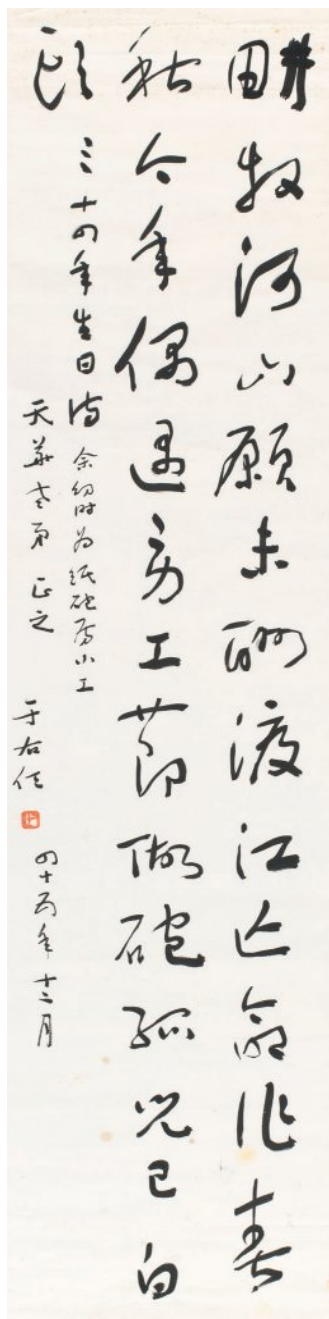 畊牧河山願未酬渡江亡命作春
秋今年偶遇勞工節做砲孤兒已白
頭
三十四年生日詩 余幼時為紙砲房小工
天華老弟正之
于右任
四十五年十二月